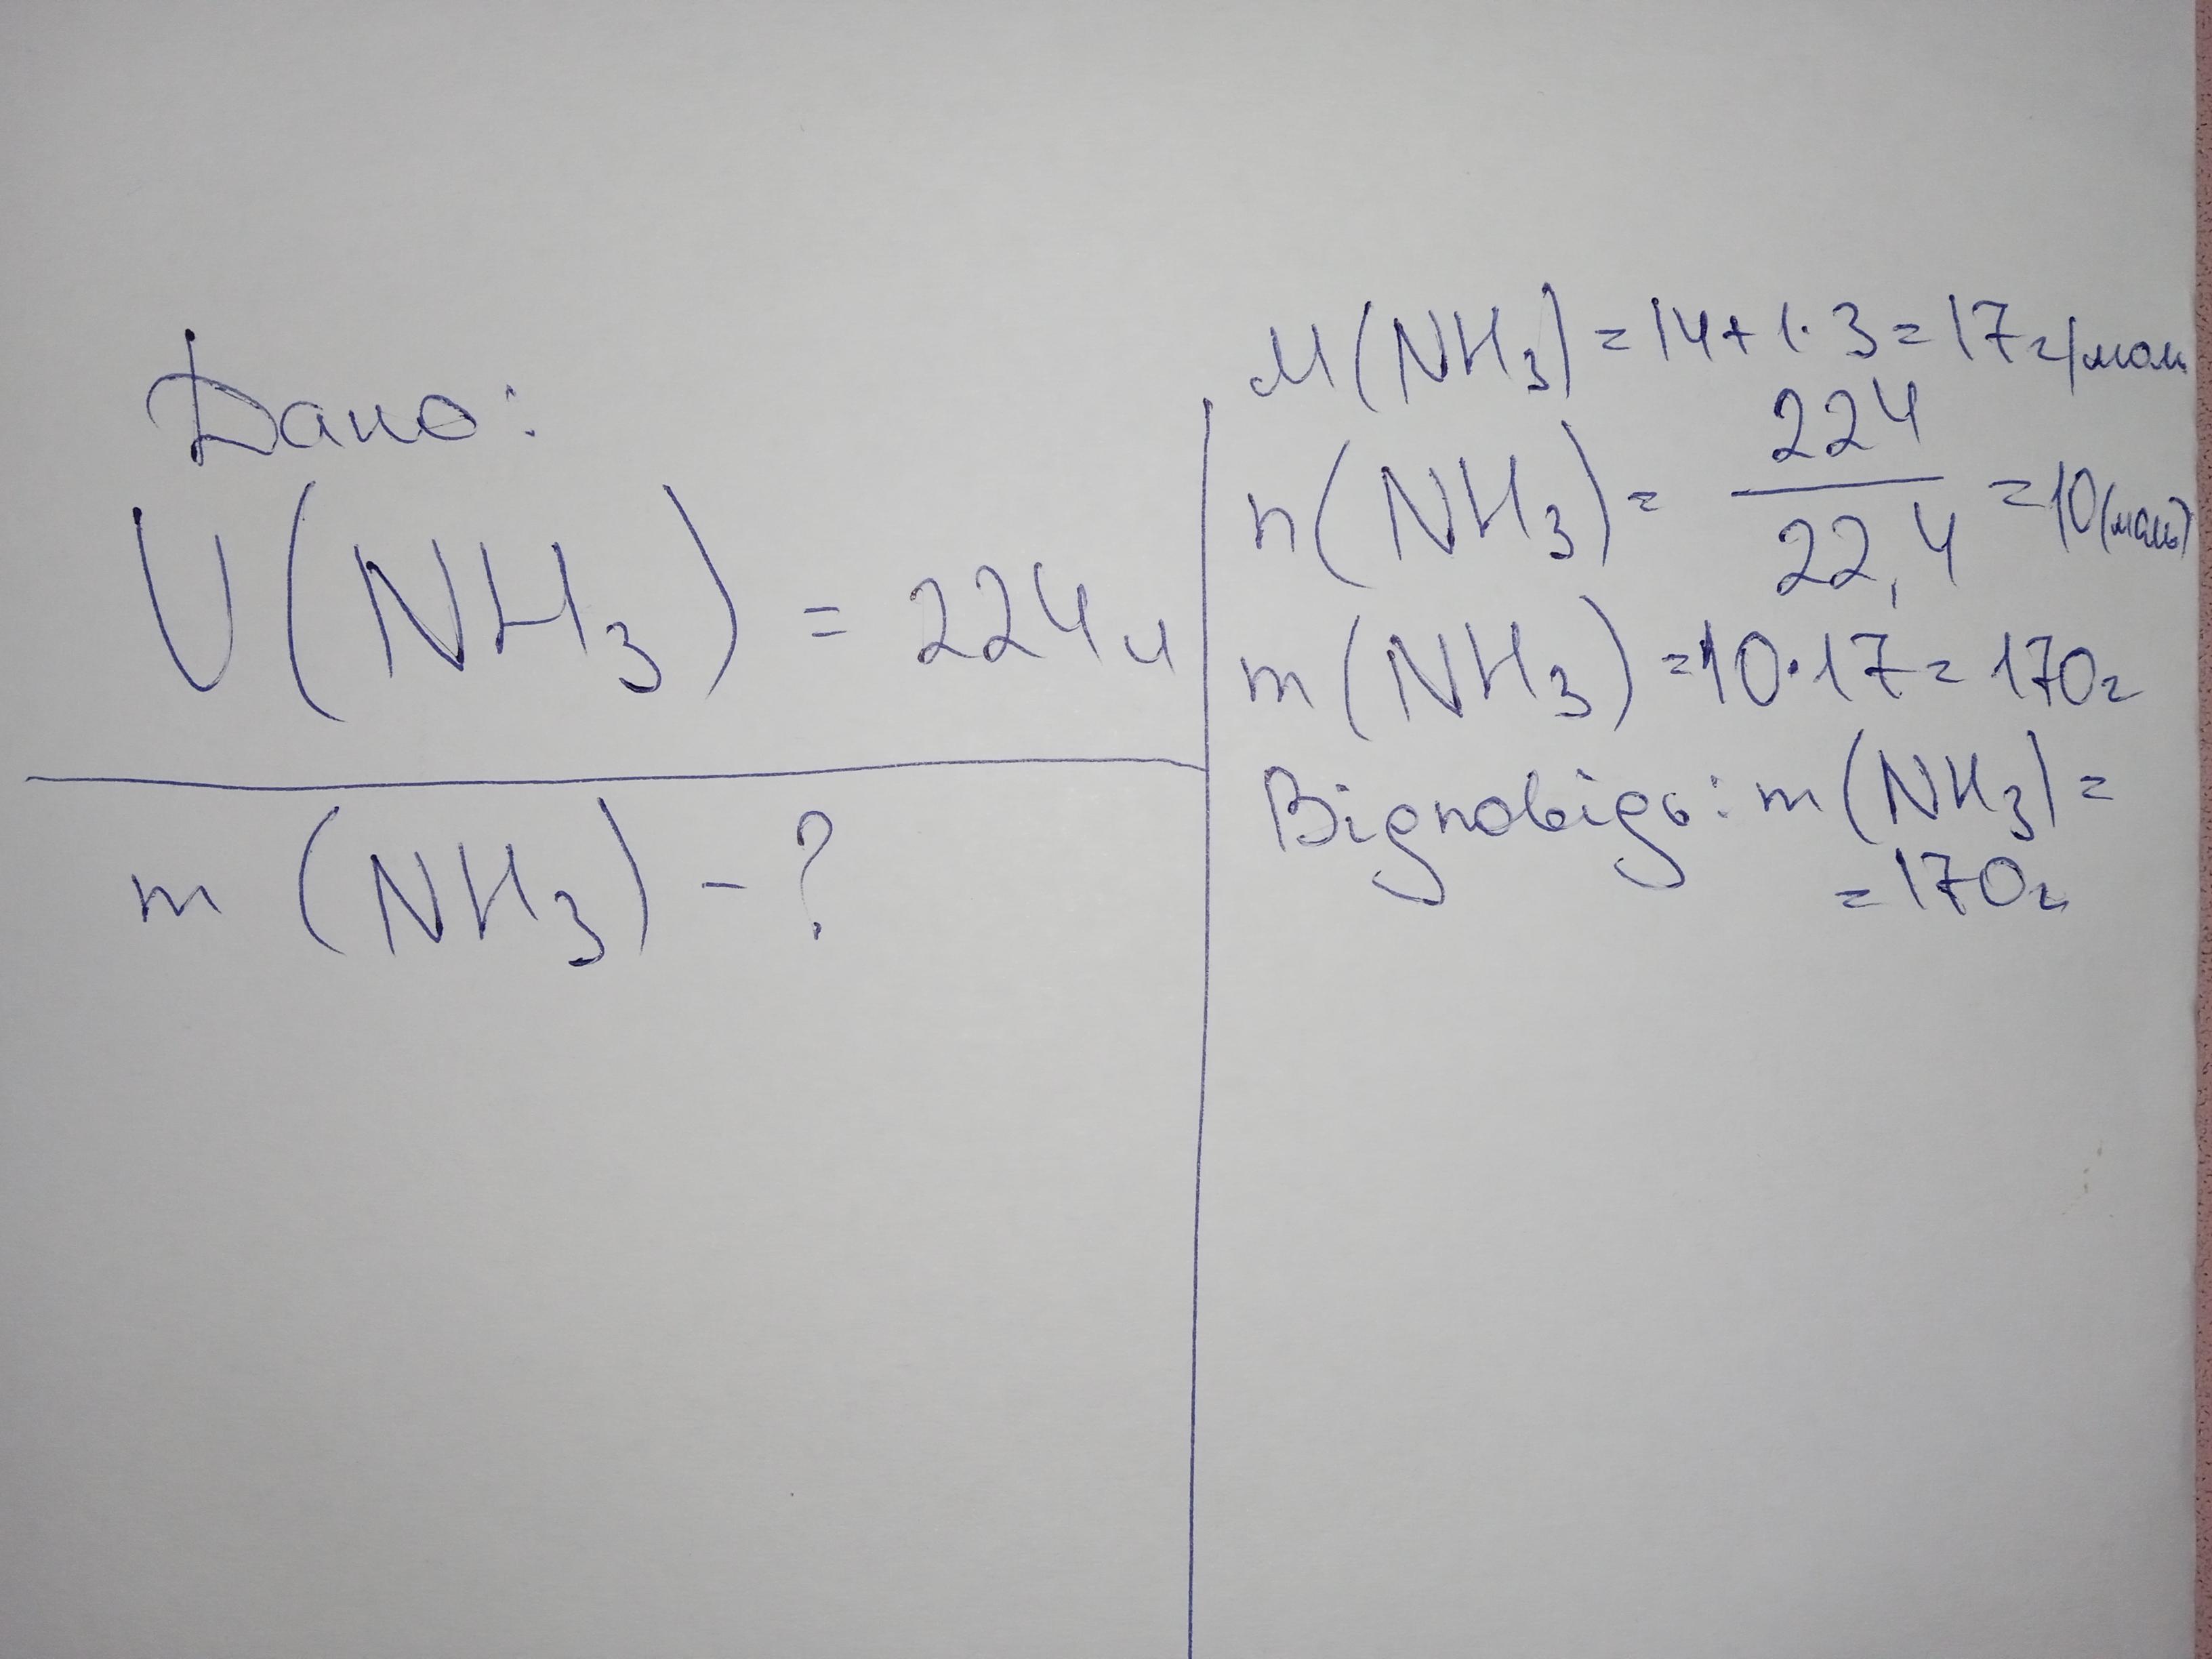 Дано:
V(NH₃) = 224 л
m (NH₃) - ?
M(NH₃) = 14 + 1·3 = 17 г/моль
n(NH₃) = 224/22,4 = 10(моль)
m(NH₃) = 10·17 = 170 г
Відповідь: m(NH₃) =
= 170 г